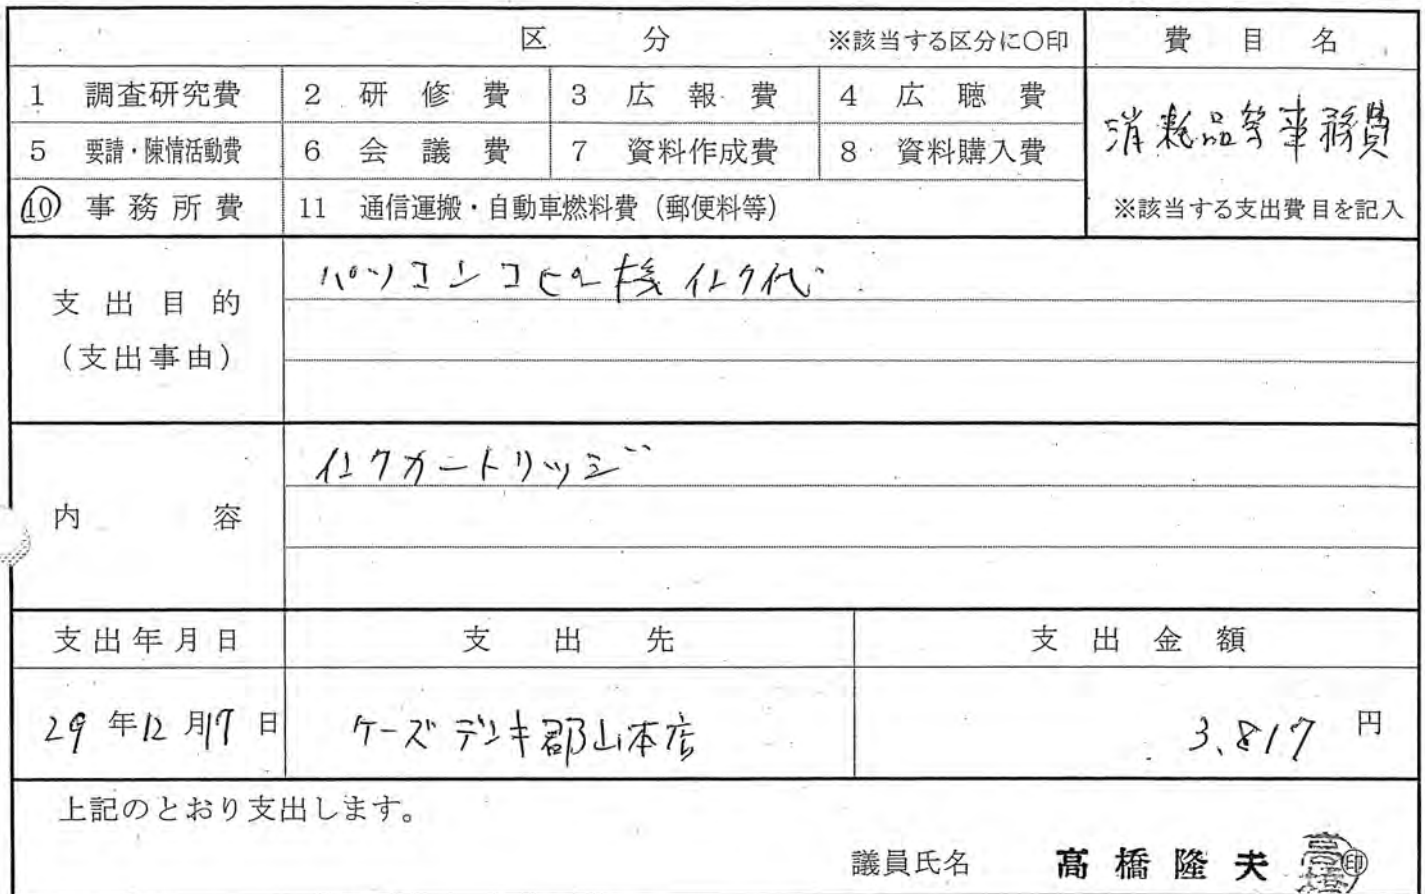 区 分 ※該当する区分に〇印 費 目 名
1 調査研究費 2 研 修 費 3 広 報 費 4 広 聴 費
消耗品等事務費
5 要請・陳情活動費 6 会 議 費 7 資料作成費 8 資料購入費
10 事務所費 11 通信運搬・自動車燃料費(郵便料等) ※該当する支出費目を記入
支出目的
(支出事由)
パソコンコピー機インク代
内 容
インクカートリッジ
支出年月日 支 出 先 支 出 金 額
29年12月17日 ケーズデンキ郡山本店 3,817 円
上記のとおり支出します。
議員氏名 髙橋隆夫 ㊞